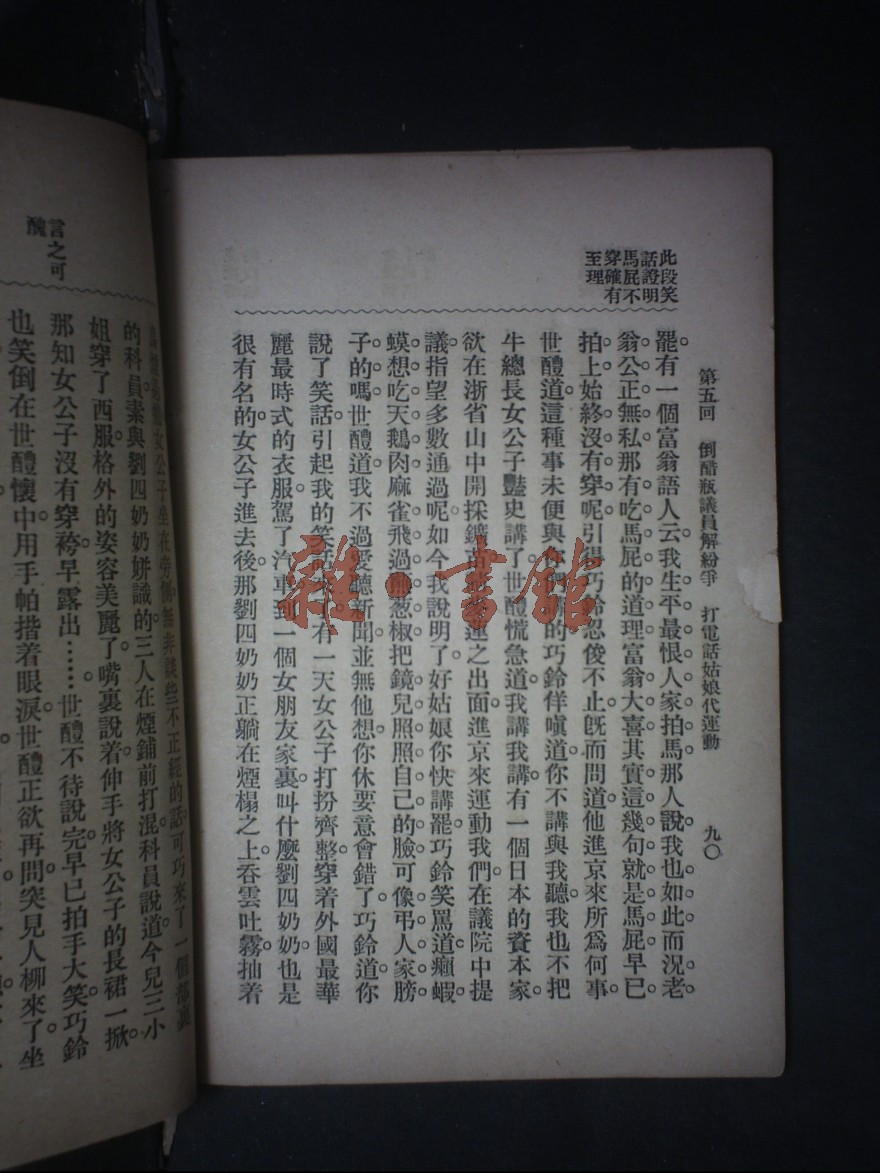 第五回　倒醋瓶議員解紛爭　打電話姑娘代運動　九〇
此段笑
話證明
馬屁不
穿確有
至理
罷。有一個富翁語人云。我生平最恨人家拍馬。那人說我也如此。而況老
翁公正無私。那有吃馬屁的道理。富翁大喜。其實這幾句就是馬屁。早已
拍上。始終沒有穿呢。引得巧鈴忍俊不止。旣而問道。他進京來所爲何事。
世醴道。這種事未便與你的。巧鈴佯嗔道。你不講與我聽。我也不把
牛總長女公子豔史講了。世醴慌急道。我講我講。有一個日本的資本家。
欲在浙省山中開採鑛苗運之出面進京來運動我們。在議院中提
議。指望多數通過呢。如今我說明了。好姑娘你快講罷。巧鈴笑罵道。癩蝦
蟆想吃天鵝肉。麻雀飛過葱椒。把鏡兒照照自己的臉。可像弔人家膀
子的嗎。世醴道。我不過愛聽新聞。並無他想。你休要意會錯了。巧鈴道。你
說了笑話。引起我的笑話。有一天女公子打扮齊整。穿着外國最華
麗最時式的衣服。駕了汽車到一個女朋友家裏。叫什麼劉四奶奶。也是
很有名的。女公子進去後。那劉四奶奶正躺在煙榻之上。吞雲吐霧。抽着
言之可
醜
女公子坐在旁側。無非談些不正經的話。可巧來了一個部裏
的科員。素與劉四奶奶姘識的。三人在煙鋪前打混。科員說道。今兒三小
姐穿了西服。格外的姿容美麗了。嘴裏說着。伸手將女公子的長裙一掀。
那知女公子沒有穿袴。早露出……世醴不待說完。早已拍手大笑。巧鈴
也笑倒在世醴懷中。用手帕揩着眼淚。世醴正欲再問。突見人柳來了。坐